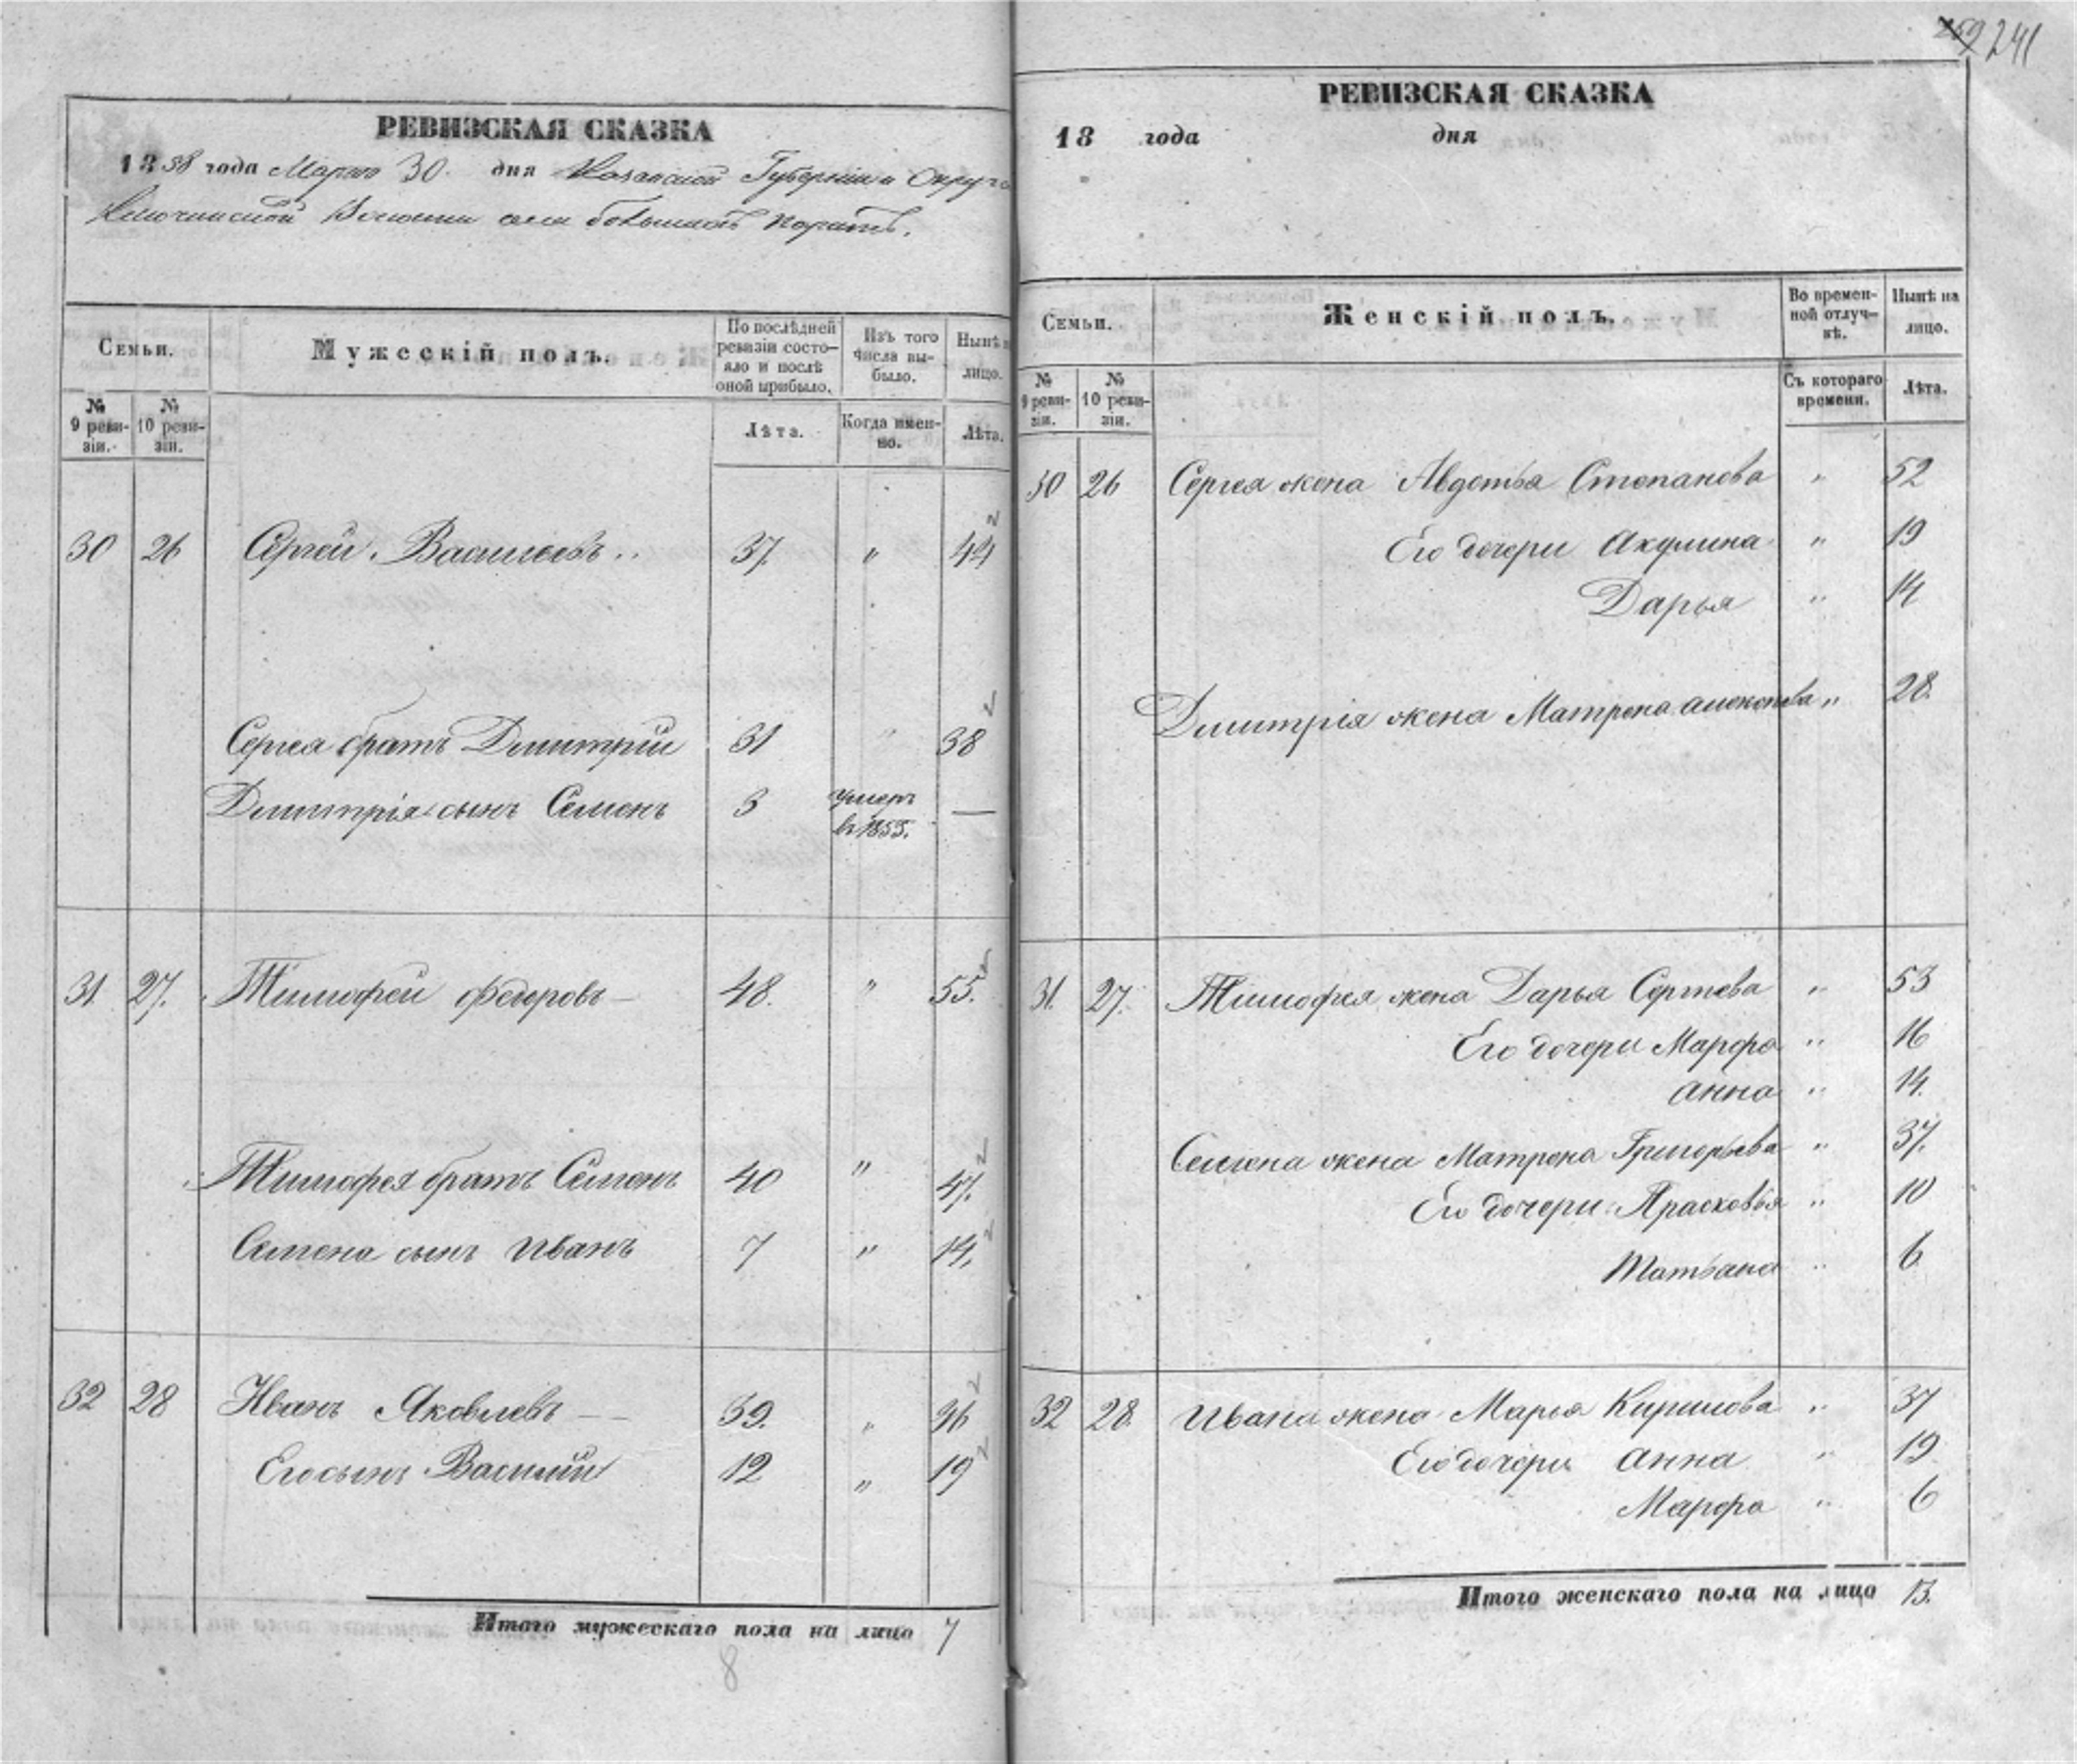 259 241
РЕВИЗСКАЯ СКАЗКА
1858 года Марта 30. дня Казанской Губерніи и Округа
Ключинской Волости села большихъ
РЕВИЗСКАЯ СКАЗКА
18 года дня
Семьи.
Мужескій полъ.
По послѣдней ревизіи состояло и послѣ оной прибыло.
Изъ того числа выбыло.
Нынѣ на лицо.
№ 9 ревизіи.
№ 10 ревизіи.
Лѣта.
Когда именно.
Лѣта.
30 26 Сергей Васильевъ 37. " 44
Сергея братъ Димитрій 31 " 38
Димитрія сынъ Семенъ 3 умеръ въ 1855. —
31. 27. Тимофей Федоровъ — 48. " 55.
Тимофея братъ Семенъ 40 " 47.
Семена сынъ Иванъ 7 " 14.
32 28 Иванъ Яковлевъ — 39. " 46
Его сынъ Василий 12 " 19
Итого мужескаго пола на лицо 7
8
Семьи.
Женскій полъ.
Во временной отлучкѣ.
Нынѣ на лицо.
№ 9 ревизіи.
№ 10 ревизіи.
Съ котораго времени.
Лѣта.
30 26 Сергея жена Авдотья Степанова " 52
Его дочери Акулина " 19
Дарья " 14
Димитрія жена Матрена " 28.
31. 27. Тимофея жена Дарья Сергеева " 53
Его дочери Марфа " 16
Анна " 14.
Семена жена Матрена Григорьева " 37.
Его дочери Прасковья " 10
Татьана " 6
32 28. Ивана жена Марья Кирилова " 37
Его дочери Анна " 19.
Марфа " 6
Итого женскаго пола на лицо 13.